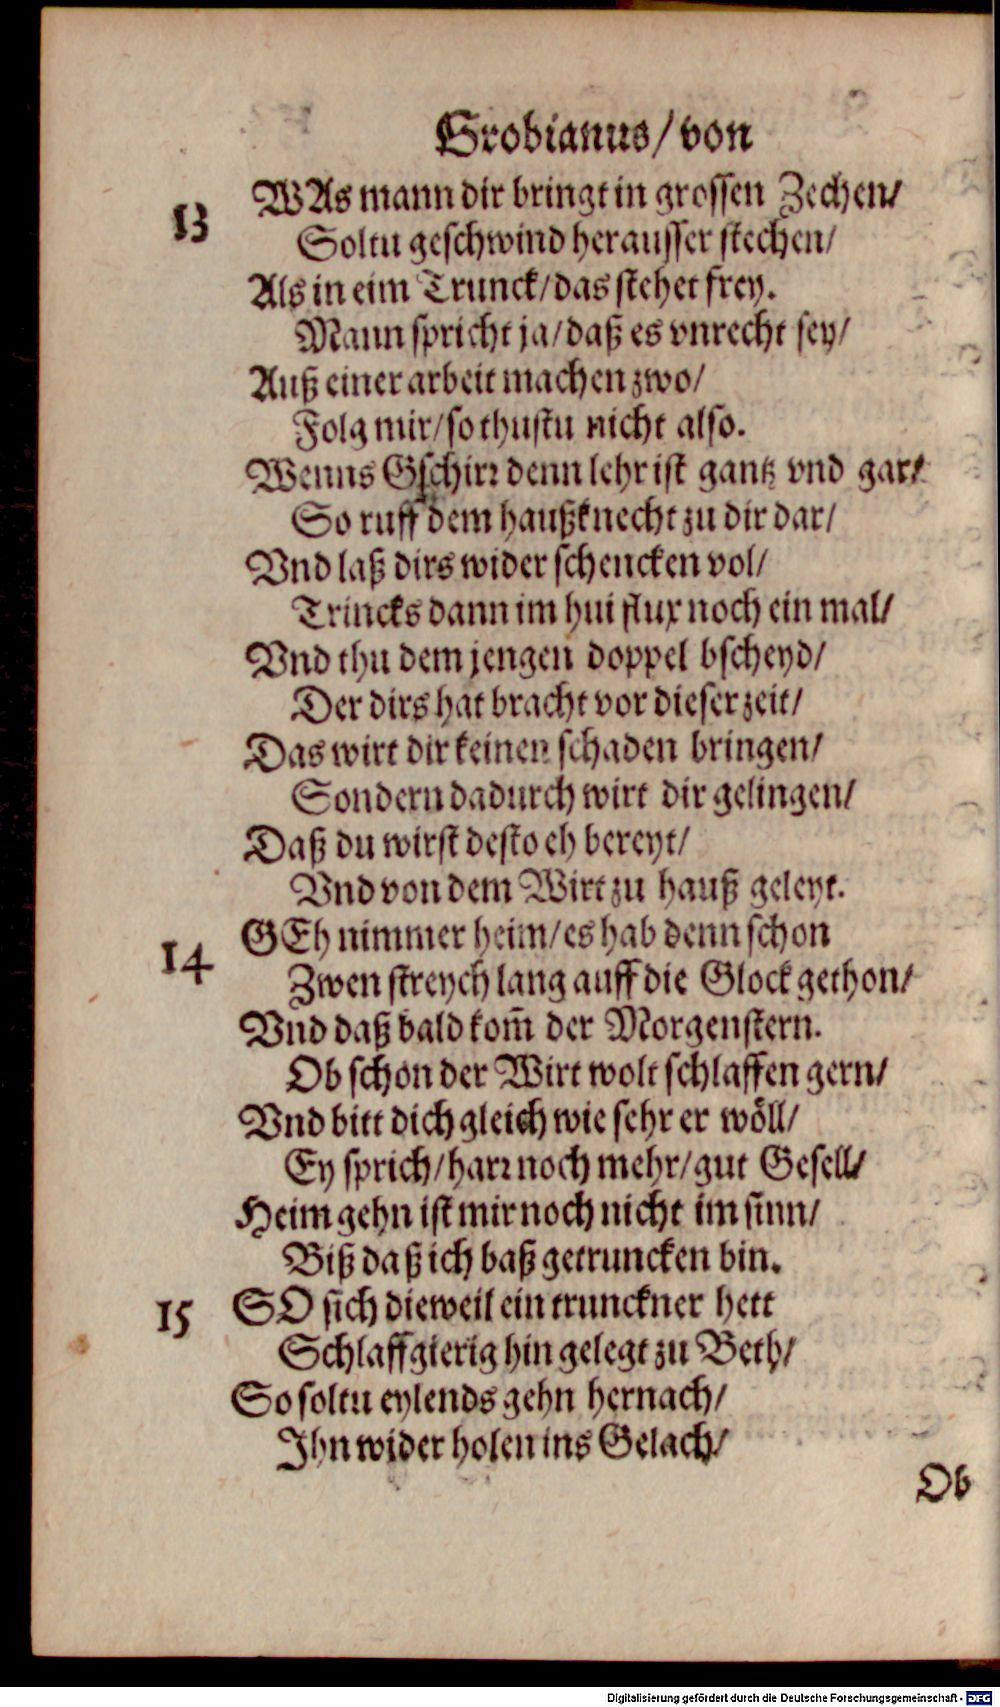 Grobianus/ von
13 WAs mann dir bringt in grossen Zechen/
Soltu geschwind herausser stechen/
Als in eim Trunck/ das stehet frey.
Mann spricht ja/ daß es vnrecht sey/
Auß einer arbeit machen zwo/
Folg mir/ so thustu nicht also.
Wenns Gschirr denn lehr ist gantz vnd gar/
So ruff dem haußknecht zu dir dar/
Vnd laß dirs wider schencken vol/
Trincks dann im hui flux noch ein mal/
Vnd thu dem jengen doppel bscheyd/
Der dirs hat bracht vor dieser zeit/
Das wirt dir keinen schaden bringen/
Sondern dadurch wirt dir gelingen/
Daß du wirst desto eh bereyt/
Vnd von dem Wirt zu hauß geleyt.
14 GEh nimmer heim/ es hab denn schon
Zwen streych lang auff die Glock gethon/
Vnd daß bald kom̃ der Morgenstern.
Ob schon der Wirt wolt schlaffen gern/
Vnd bitt dich gleich wie sehr er wöll/
Ey sprich/ harr noch mehr/ gut Gesell/
Heim gehn ist mir noch nicht im sinn/
Biß daß ich baß getruncken bin.
15 SO sich dieweil ein trunckner hett
Schlaffgierig hin gelegt zu Beth/
So soltu eylends gehn hernach/
Ihn wider holen ins Gelach/
Ob
Digitalisierung gefördert durch die Deutsche Forschungsgemeinschaft - DFG